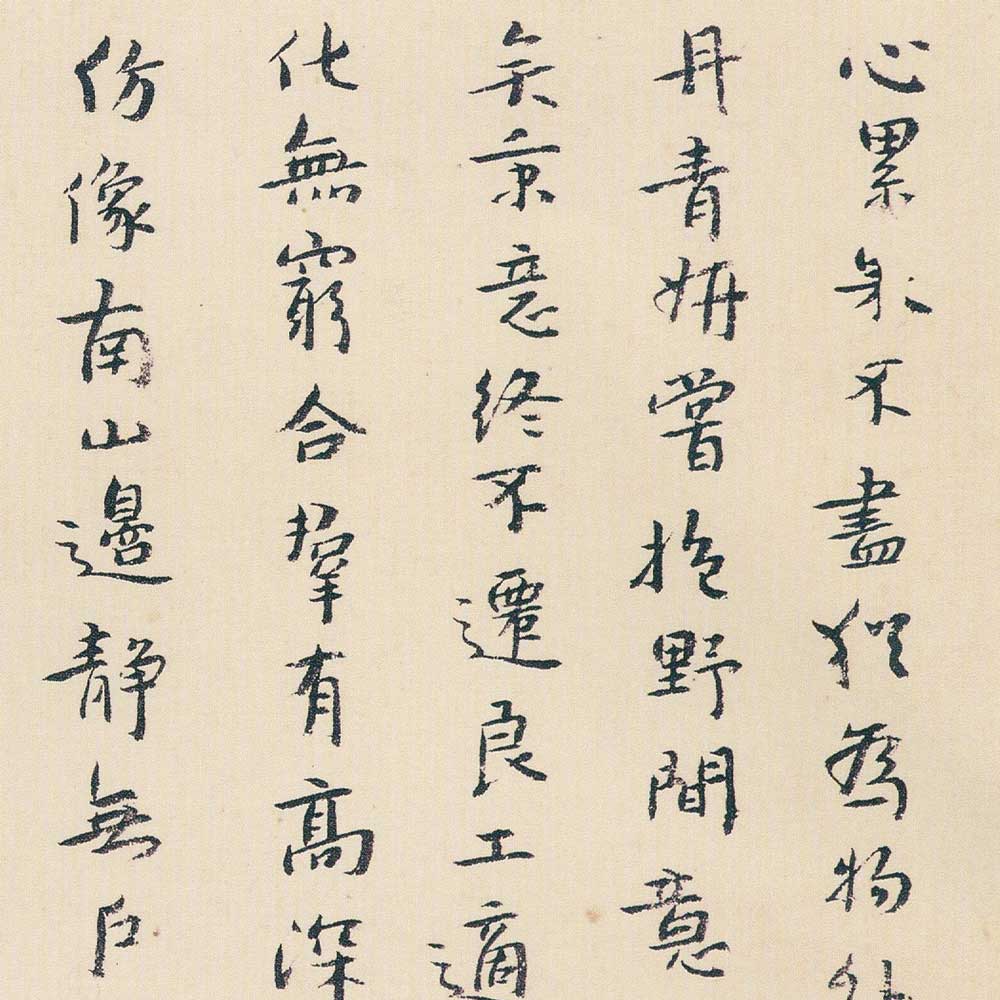 心累不盡猶爲物外
丹青妍嘗抱野間意
矣意終不遷良工適
化無窮合羣有高深
仿像南山邊靜無戶